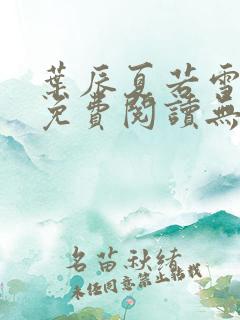 葉辰夏若雪
免費閱讀無
名苗秋緒
未经同意禁止转载